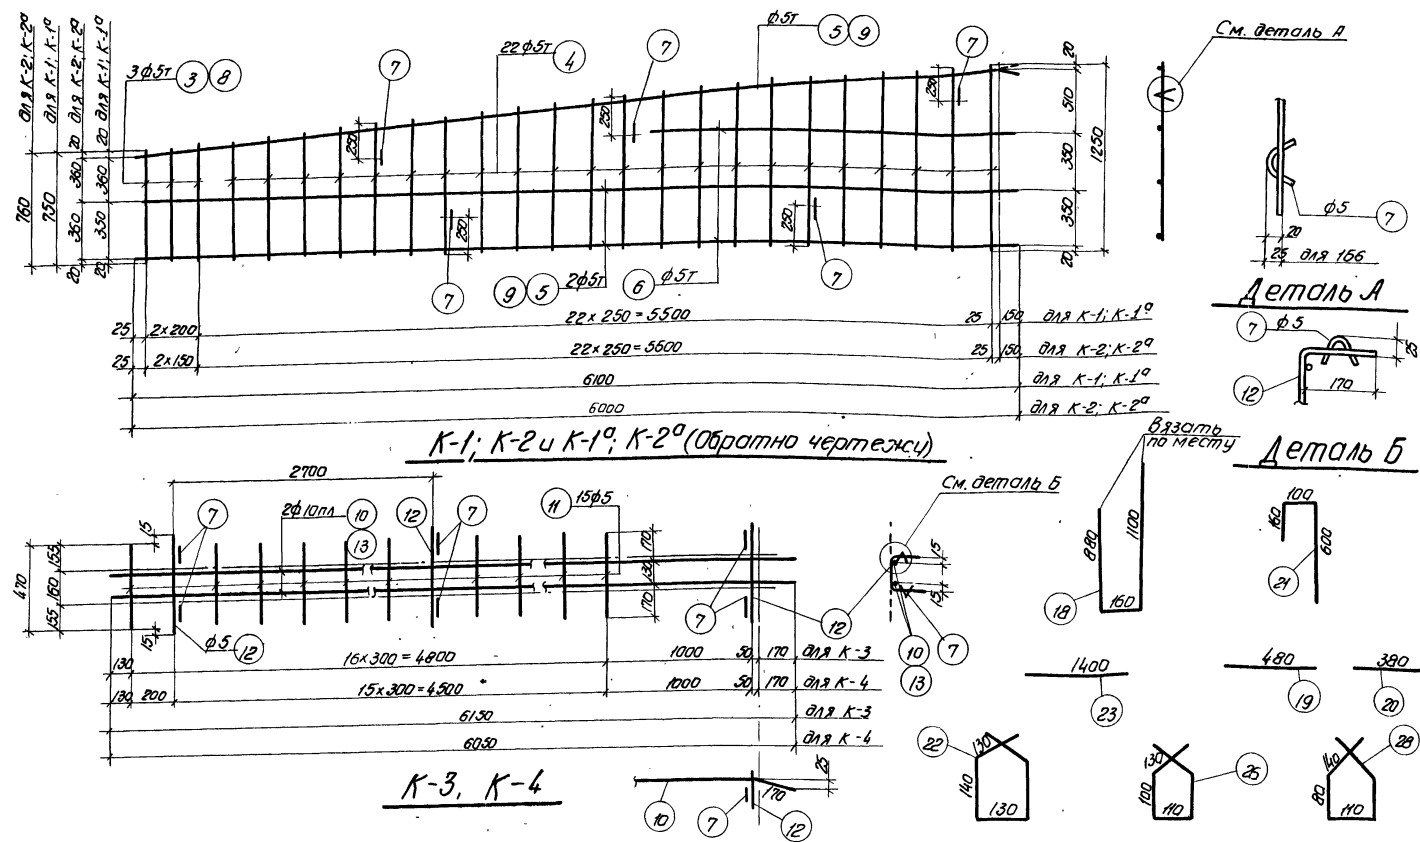 для К-2; К-2ª
для К-1; К-1ª
для К-2; К-2ª
для К-1; К-1ª
760
750
20 360 350 20
20 360 350 20
3ф5т 3 8
7
250
22ф5т 4
7
250
ф5т 5 9
7
250
20
510
350
350
20
1250
250
7
9 5 2ф5т
6 ф5т
250
7
25 2×200 22×250=5500 25 150 для К-1; К-1ª
25 2×150 22×250=5500 25 150 для К-2; К-2ª
6100 для К-1; К-1ª
6000 для К-2; К-2ª
К-1; К-2 и К-1ª; К-2ª (Обратно чертежу)
См. деталь А
ф5 7
20
25 для 156
Деталь А
7 ф5
25
12
170
Деталь Б
2700
7
2ф10пл 10
13
12
7
11 15ф5
470
15
155
160
155
15
ф5 12
170
130
170
7
12
См. деталь Б
15
15
10
13
7
130 16×300=4800 1000 50 170 для К-3
130 200 15×300=4500 1000 50 170 для К-4
6150 для К-3
6050 для К-4
К-3, К-4
25
170
10
7
12
Вязать
по месту
880
1100
160
18
100
160
600
21
1400
23
480
19
380
20
22
130
140
130
130
100
110
25
140
80
110
28